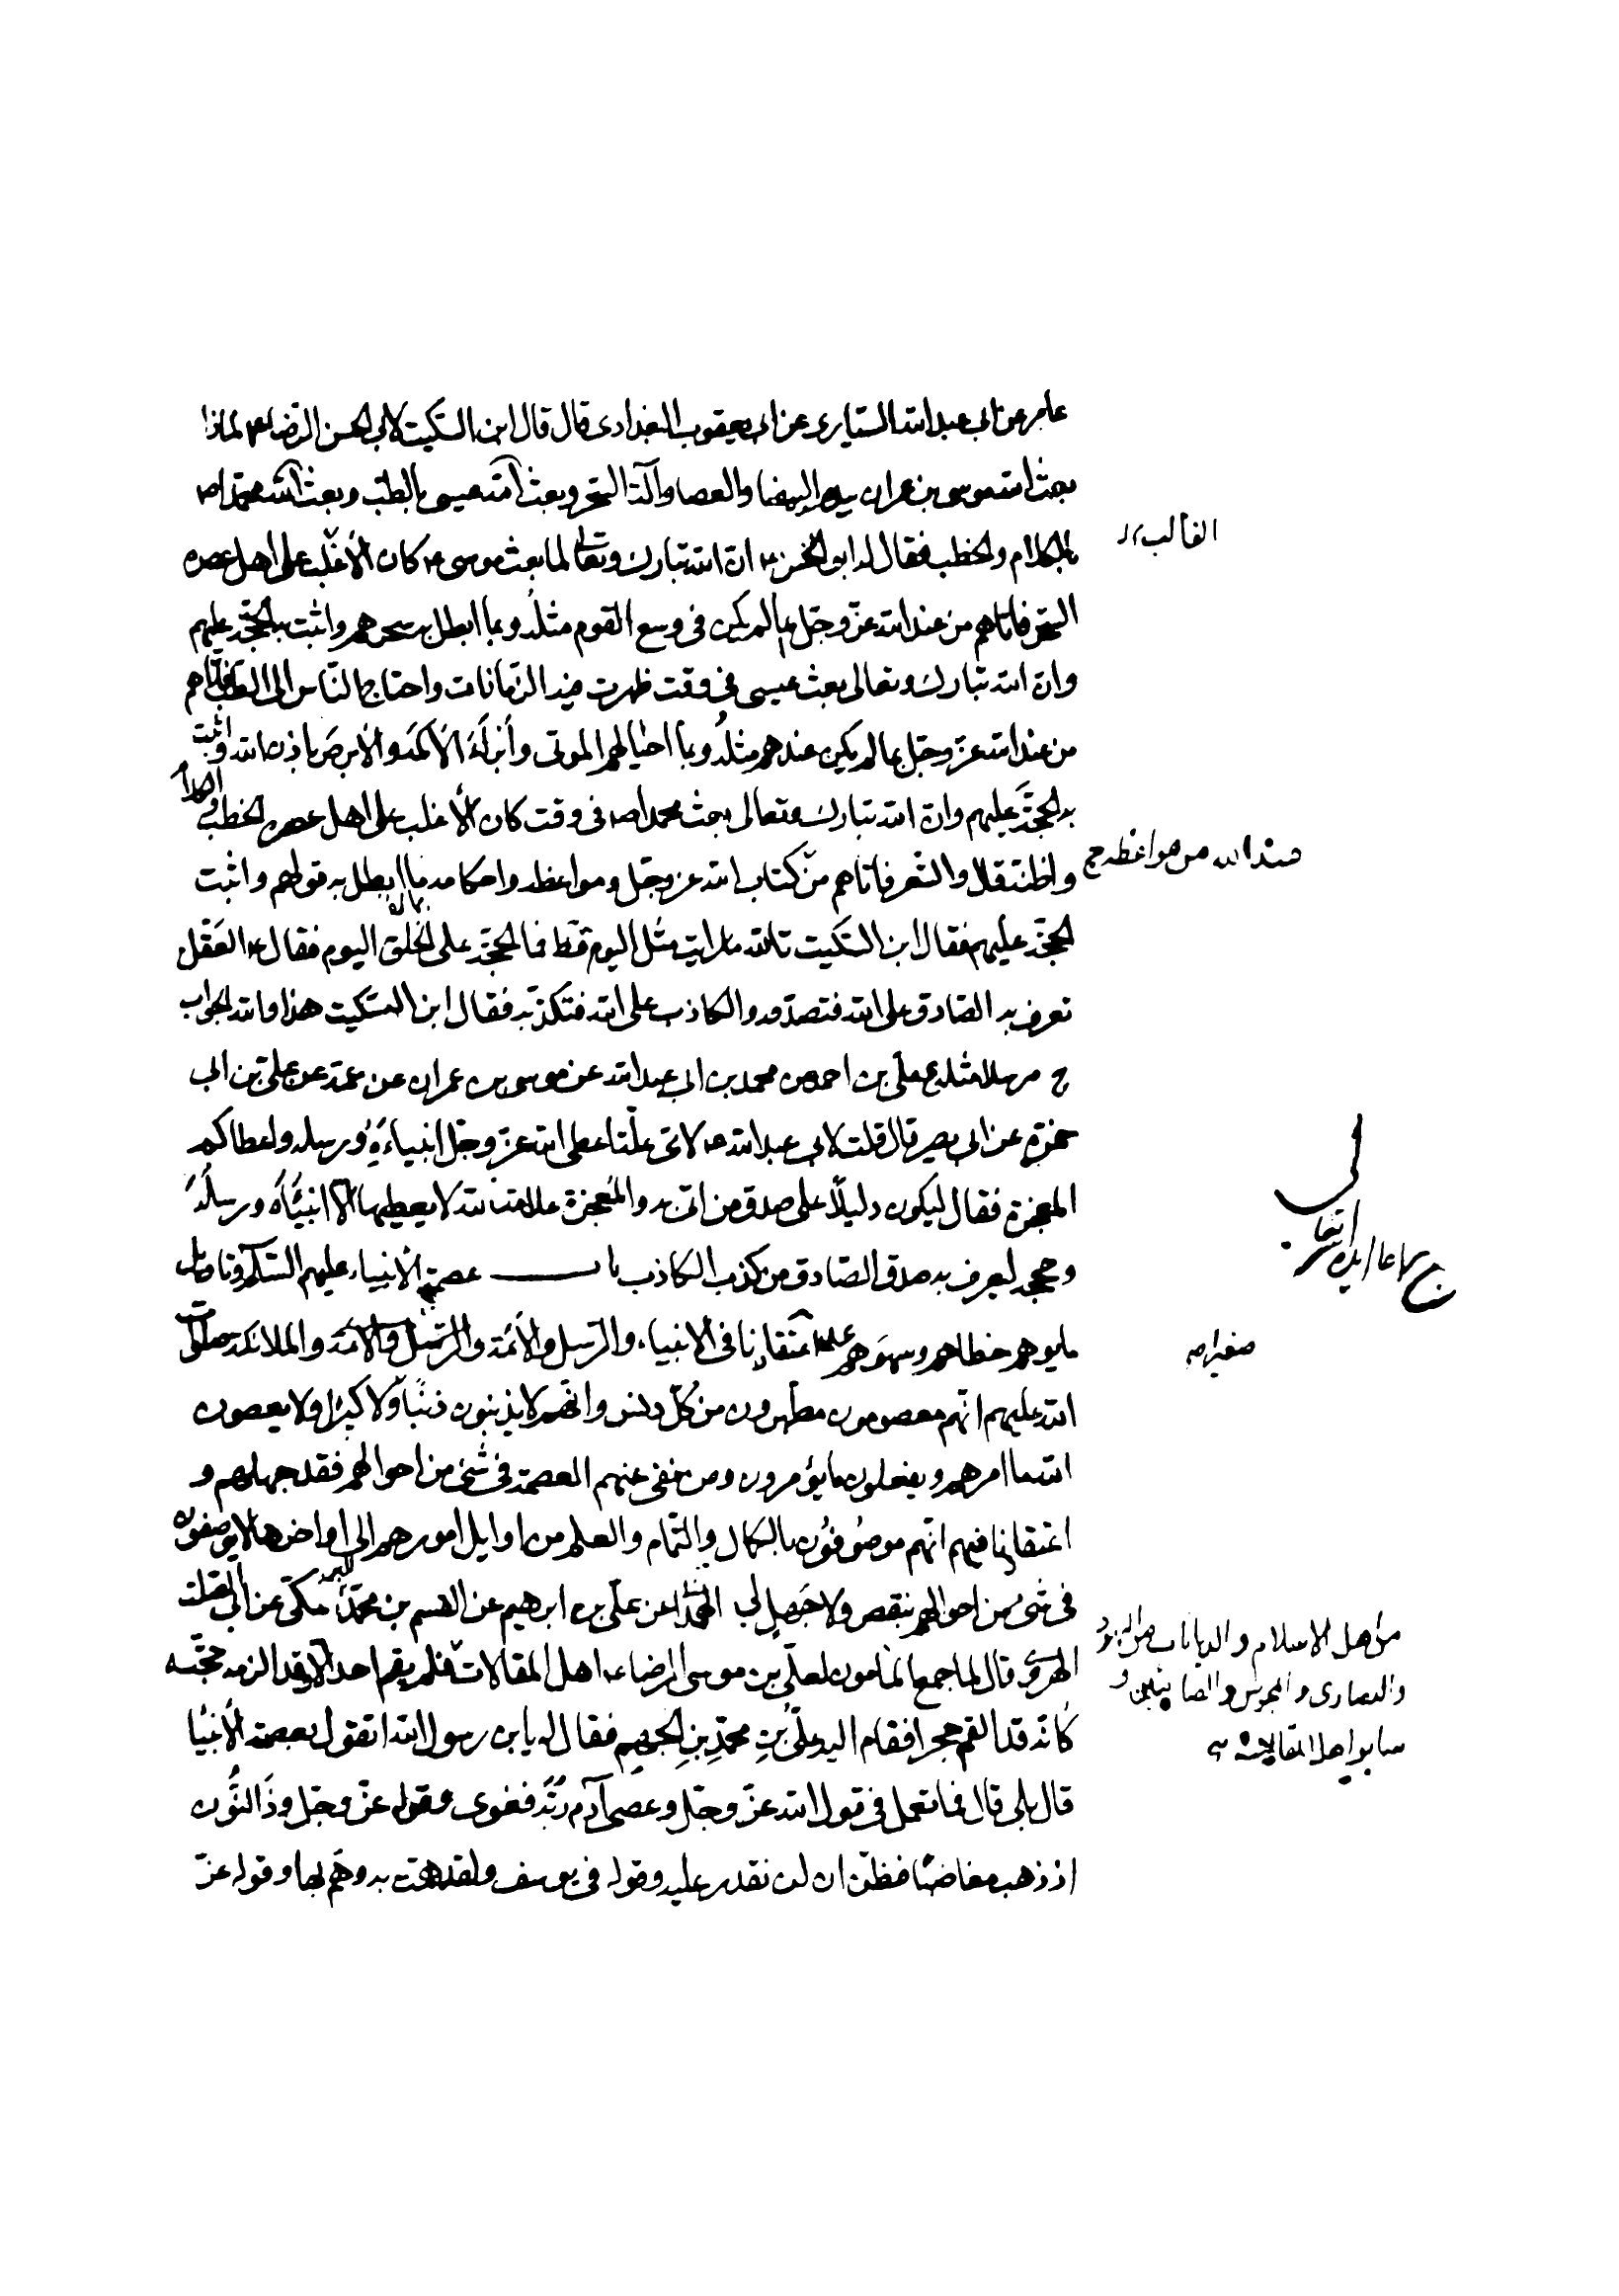 عامر عن ابي عبد الله السّيّاري عن ابي يعقوب البغدادي قال قال ابن السّكيت لابي الحسن الرّضا ع لماذا
بعث الله موسى بن عمران بيده البيضا والعصا وآلة السّحر وبعث الله عيسى بالطبّ وبعث الله محمّدا ص
بالكلام والخطب فقال له ابو الحسن ع ان الله تبارك وتعالى لما بعث موسى ع كان الأغلب على اهل عصره
الغالب
السّحر فاتاهم من عند الله عزّ وجلّ بما لم يكن في وسع القوم مثله وبما ابطل به سحرهم واثبت به الحجّة عليهم
وان الله تبارك وتعالى بعث عيسى في وقت ظهرت فيه الزّمانات واحتاج النّاس الى الطبّ فاتاهم
من عند الله عزّ وجلّ بما لم يكن عندهم مثله وبما احيا لهم الموتى وأبرأ الأكمه والأبرص باذن الله واثبت
به الحجّة عليهم وان الله تبارك وتعالى بعث محمدا ص في وقت كان الأغلب على اهل عصره الخطب والكلام
واظنّه قال والشّعر فاتاهم من كتاب الله عز وجلّ ومواعظه واحكامه ما ابطل به قولهم واثبت
عند الله من مواعظه
الحجّة عليهم فقال ابن السّكيت تالله ما رايت مثل اليوم قطّ فما الحجّة على الخلق اليوم فقال ع العقل
تعرف به الصّادق على الله فتصدّقه والكاذب على الله فتكذّبه فقال ابن السّكيت هذا والله الجواب
ج مرسلا مثله ع علي بن احمد عن محمد بن ابي عبد الله عن موسى بن عمران عن عمّه عن علي بن ابي
حمزة عن ابي بصير قال قلت لابي عبد الله ع لايّ علّة اعطى الله عزّ وجلّ انبياءه ورسله واعطاكم
المعجزة فقال ليكون دليلاً على صدق من اتى به والمعجزة علامة لله لا يعطيها الّا انبيائه ورسله
وحججه ليعرف به صدق الصّادق من كذب الكاذب باب عصمة الأنبياء عليهم السّلام وتاويل
ما يوهم خطاهم وسهوهم عد اعتقادنا في الأنبياء والرّسل والأئمّة والملائكة صلوات
الله عليهم انّهم معصومون مطهرون من كلّ دنس وانّهم لا يذنبون ذنباً ولا كبيرا ولا يعصون
صغيرا ص
الله ما امرهم ويفعلون ما يؤمرون ومن نفى عنهم العصمة في شئ من احوالهم فقد جهلهم و
اعتقادنا فيهم انّهم موصوفون بالكمال والتّمام والعلم من اوايل امورهم الى اواخرها لا يوصفون
في شئ من احوالهم بنقص ولا جهل لي الهمداني عن عليّ بن ابراهيم عن القسم بن محمّد البرمكي عن ابي الصّلت
الهروي قال لما جمع المأمون لعليّ بن موسى الرضا ع اهل المقالات فلم يقم احد الّا وقد الزمه حجّته
من اهل الاسلام والديانات من اليهود
والنصارى والمجوس والصابئين و
ساير اهل المقالات
كانّه قد القم حجرا فقام اليه عليّ بن محمّد بن الجهم فقال له يا ابن رسول الله اتقول بعصمة الأنبيا
قال بلى قال فما تعمل في قول الله عزّ وجلّ وعصى آدم ربّه فغوى وقوله عزّ وجلّ وذا النّون
اذ ذهب مغاضبًا فظنّ ان لن نقدر عليه وقوله في يوسف ولقد همّت به وهمّ بها وقوله عزّ